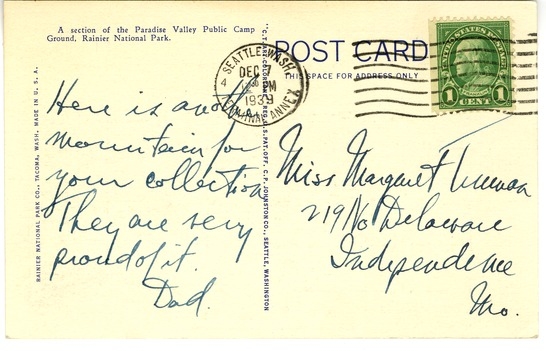 A section of the Paradise Valley Public Camp
Ground, Rainier National Park.
Here is another
mountain for
your collection
They are very
proud of it.
Dad.
RAINIER NATIONAL PARK CO., TACOMA, WASH. MADE IN U. S. A.
"C.T. ART-COLORTONE" REG. U.S. PAT. OFF. C. P. JOHNSTON CO., SEATTLE, WASHINGTON
POST CARD
THIS SPACE FOR ADDRESS ONLY
SEATTLE, WASH.
DEC
PM
1939
TERMINAL ANNEX
UNITED STATES POSTAGE
1 CENT 1
Miss Margaret Truman
219 No Delaware
Independence
Mo.